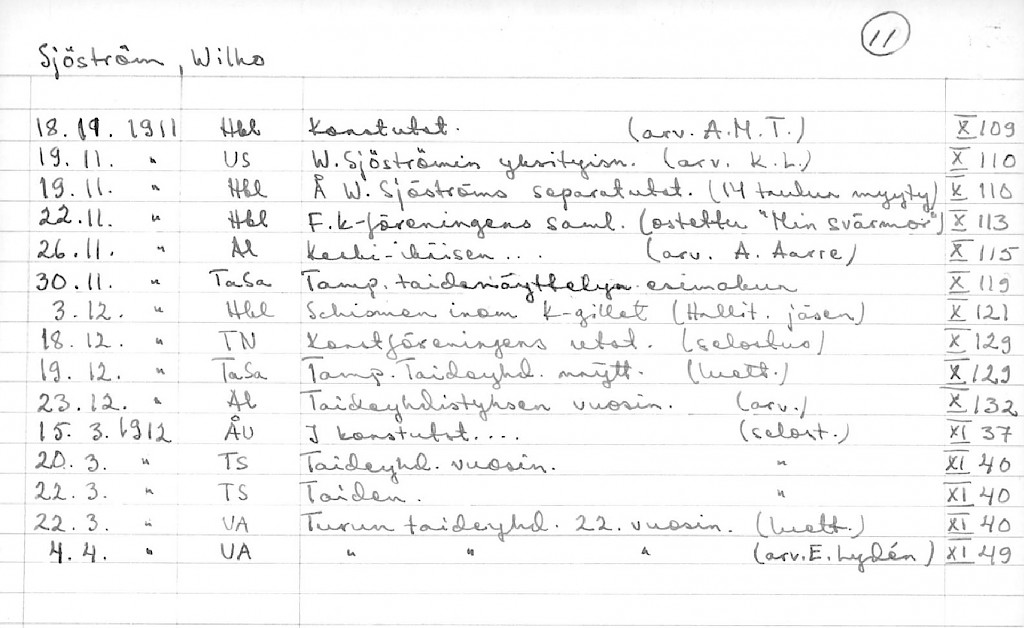 11
Sjöström, Wilho
18.11.1911 Hbl Konstutst. (arv. A.M.T.) X 109
19.11. " US W. Sjöströmin yksityisn. (arv. K.L.) X 110
19.11. " Hbl Å W. Sjöströms separatutst. (14 taulun myyty) X 110
22.11. " Hbl F. k-föreningens saml. (ostettu "Min svärmor") X 113
26.11. " Al Keski-ikäisen... (arv. A. Aarre) X 115
30.11. " TaSa Tamp. taidenäyttelyn esimakua X 119
3.12. " Hbl Schismen inom k-gillet (Hallit. jäsen) X 121
18.12. " TN Konstföreningens utst. (selostus) X 129
19.12. " TaSa Tamp. Taideyhd. näytt. (luett.) X 129
23.12. " Al Taideyhdistyksen vuosin. (arv.) X 132
15. 3.1912 ÅU I konstutst.... (selost.) XI 37
20. 3. " TS Taideyhd. vuosin. " XI 40
22. 3. " TS Taiden. " XI 40
22. 3. " UA Turun taideyhd. 22. vuosin. (luett.) XI 40
4. 4. " UA " " " (arv. E. Lydén) XI 49